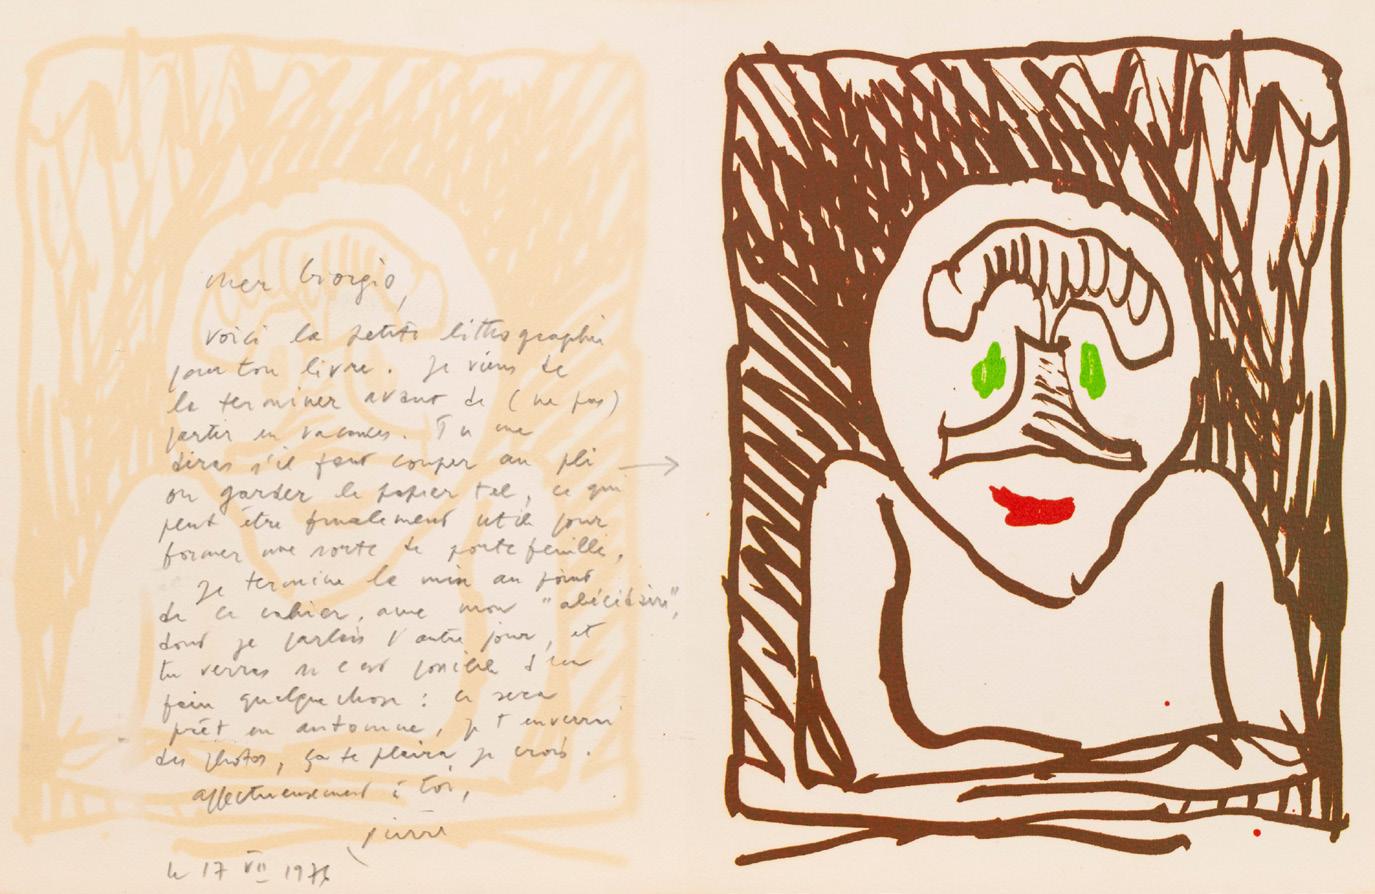 cher Giorgio,
voici la petite lithographie
pour ton livre. Je viens de
la terminer avant de (ne pas)
partir en vacances. Tu me
diras s'il faut couper au pli →
ou garder le papier tel, ce qui
peut être finalement utile pour
former une sorte de portefeuille,
Je termine la mise au point
de ce cahier, avec mon "abécédaire",
dont je parlais l'autre jour, et
tu verras si c'est possible d'en
faire quelque chose : ce sera
prêt en automne, je t'enverrai
des photos, ça te plaira, je crois.
affectueusement à toi,
Pierre
le 17 VII 1976